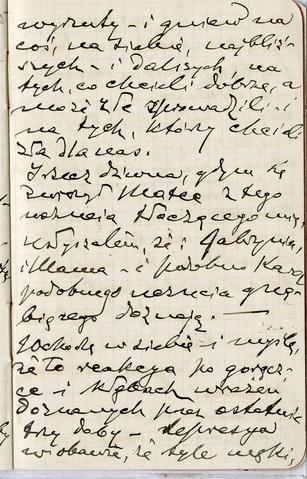 wyrzuty - i gniew na
coś, na siebie, najbliż-
szych - i dalszych, na
tych, co chcieli dobrze, a
może źle prowadzili - i
na tych, którzy chcieli
zła dla nas.
Rzecz dziwna, gdym się
zwierzył Matce z tego
uczucia tłaczącego mię,
usłyszałem, że i
i Mama - i podobno Kazi
podobnego uczucia gnę-
biącego doznają. —
Wchodzę w siebie - i myślę,
że to reakcya po gorącz-
ce i kłębach wrażeń
doznanych przez ostatnie
trzy doby - depresya
w obawie, że tyle męki,